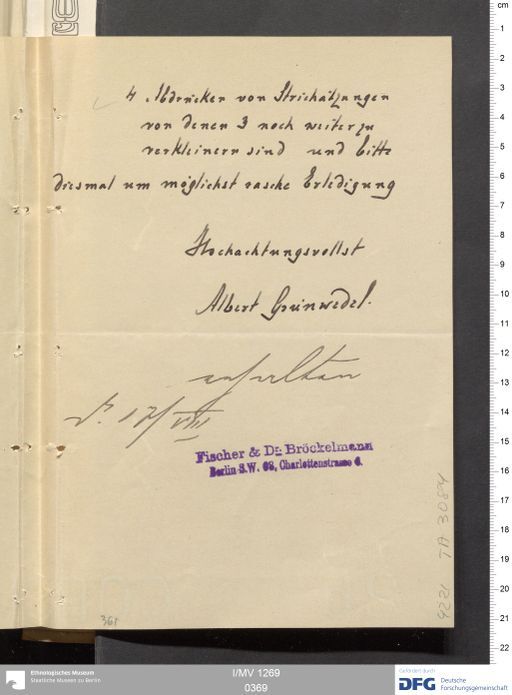 4 Abdrücken von Strichätzungen
von denen 3 noch weiter zu
verkleinern sind und bitte
diesmal um möglichst rasche Erledigung
Hochachtungsvollst
Albert Grünwedel.
erhalten
17/VIII
Fischer & Dr. Bröckelmann
Berlin S.W. 68, Charlottenstrasse 6.
4221 TA 3084
361
cm
1
2
3
4
5
6
7
8
9
10
11
12
13
14
15
16
17
18
19
20
21
22
Ethnologisches Museum
Staatliche Museen zu Berlin
I/MV 1269
0369
Gefördert durch
DFG Deutsche
Forschungsgemeinschaft